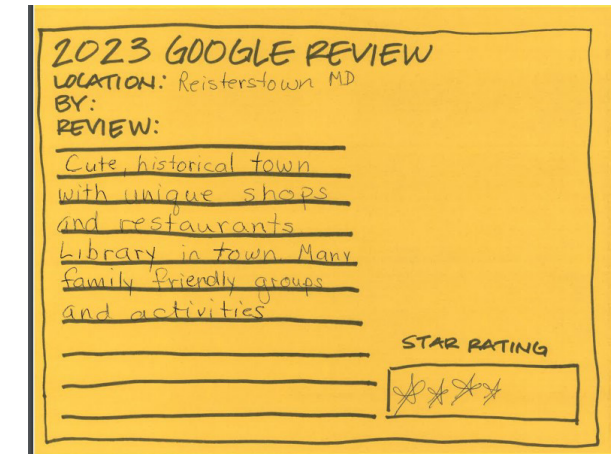 2023 GOOGLE REVIEW
LOCATION: Reisterstown MD
BY:
REVIEW:
Cute, historical town
with unique shops
and restaurants
Library in town Many
family friendly groups
and activities
STAR RATING